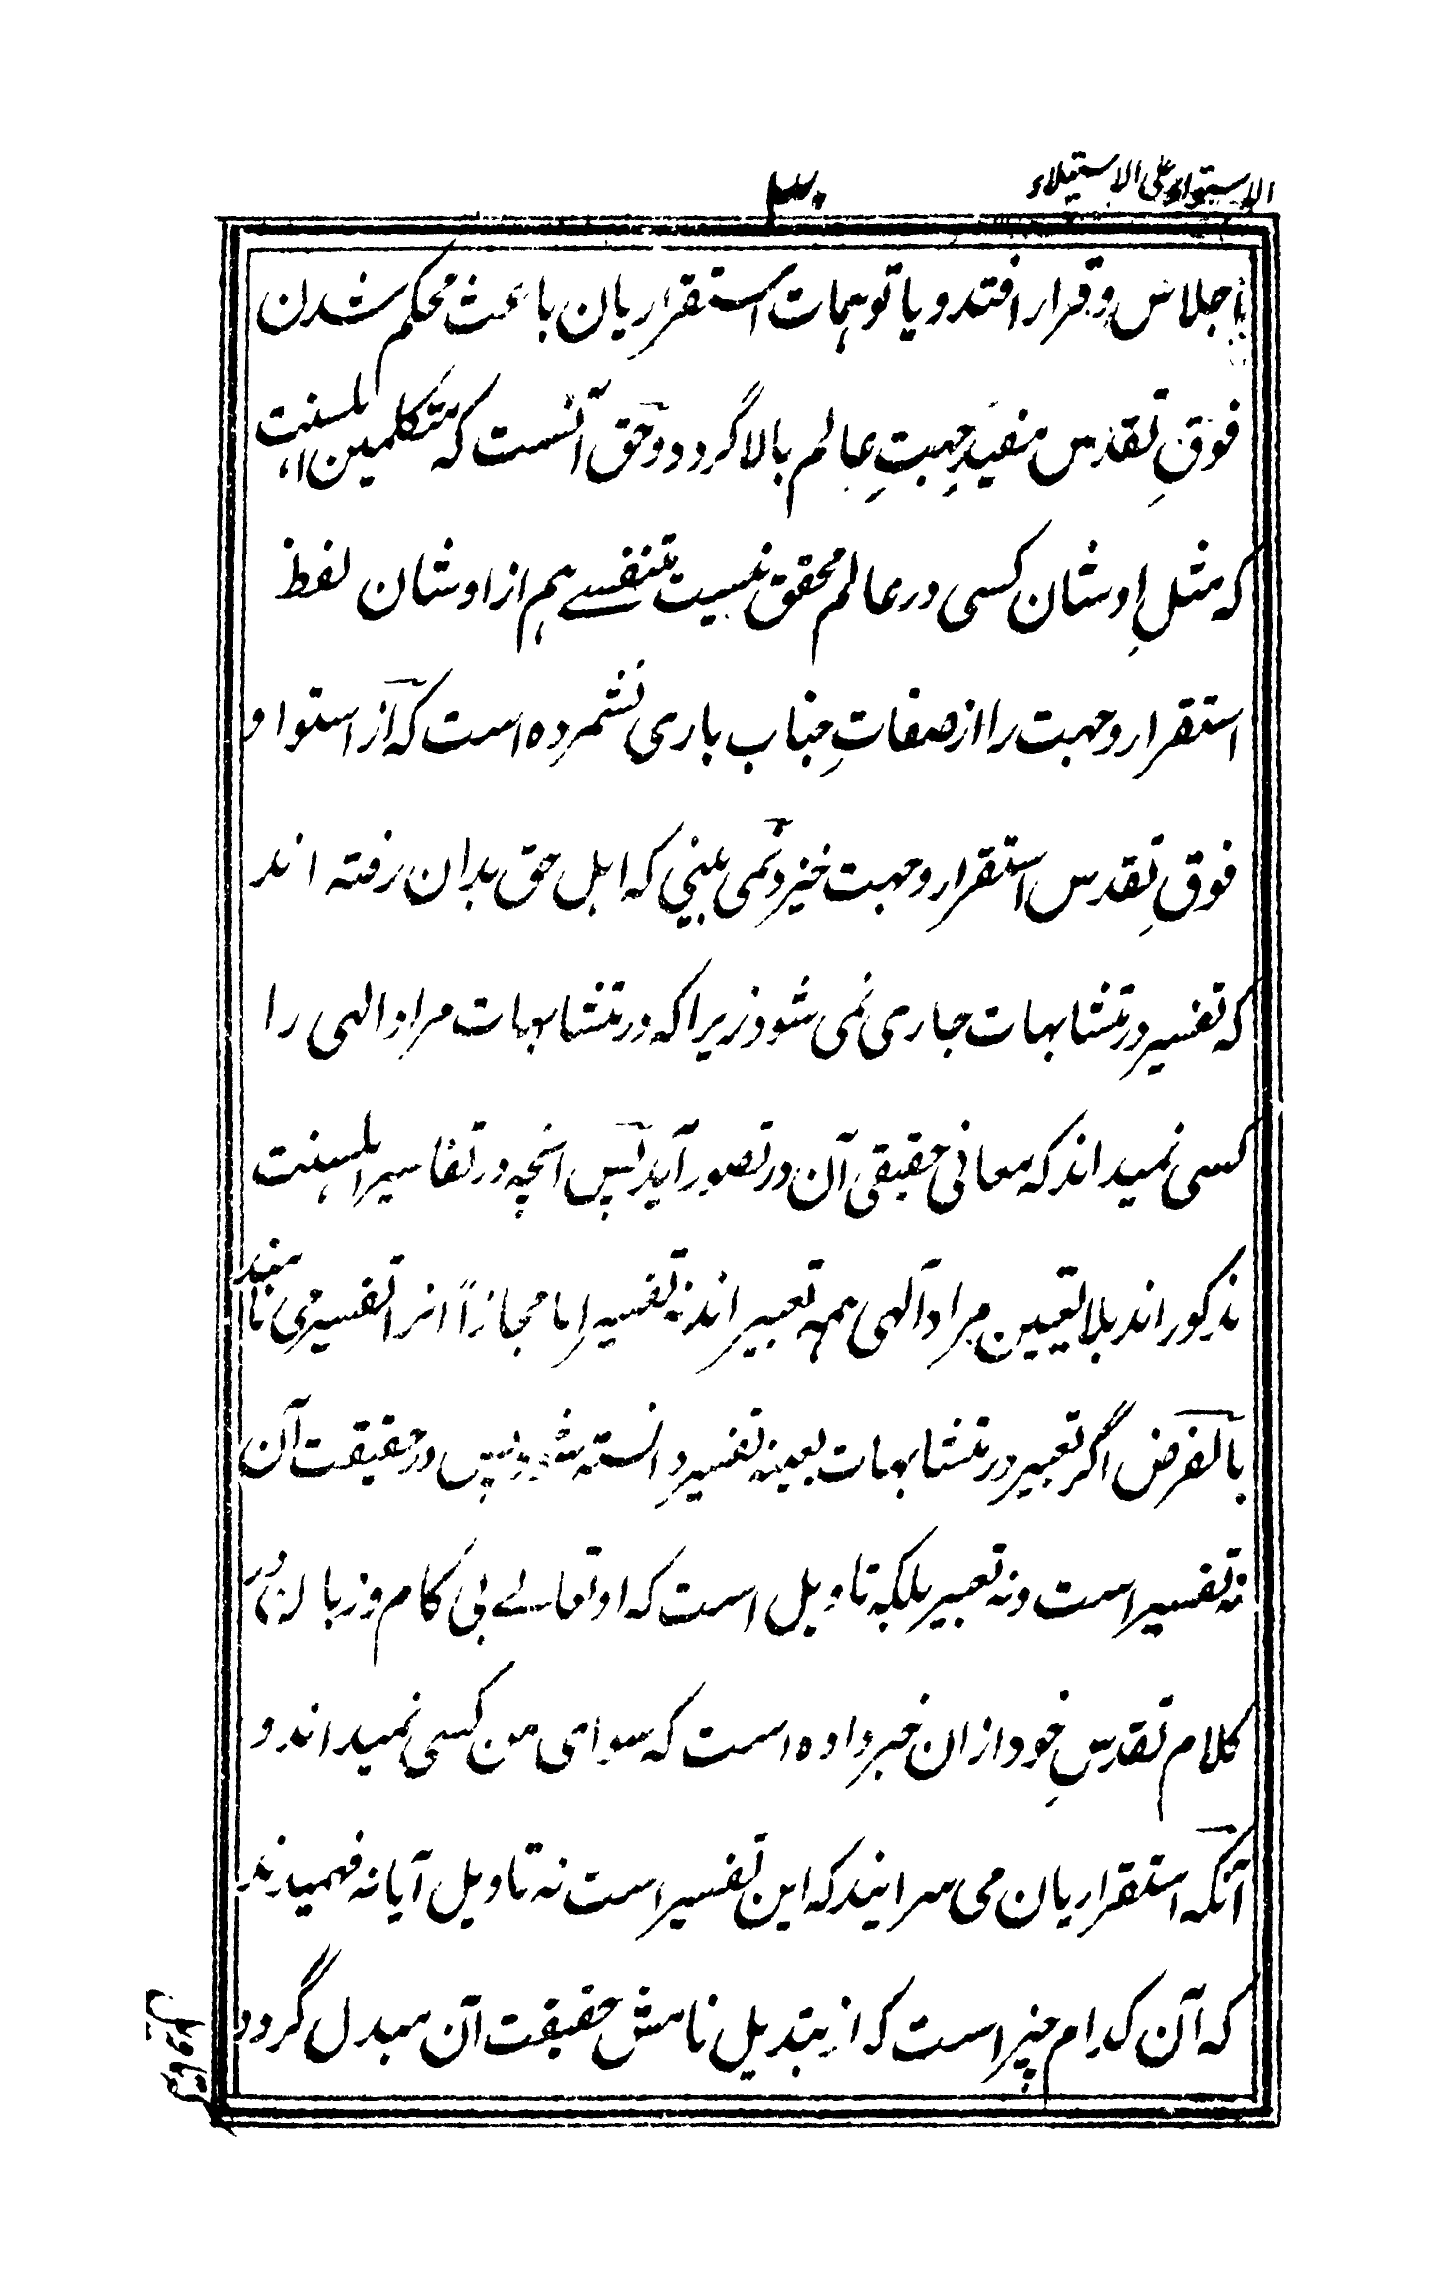 الاستواء علی الاستیلاء
۳۰
اجلاس و قرار افتد و یا توهمات استقراریان باعث محکم شدن
فوقِ تقدس مفیدِ جهتِ عالم بالا گردد و حق آنست که متکلمین اهلسنت
که مثلِ اوشان کسی در عالم محقق نیست تنفسے هم از اوشان لفظ
استقرار و جهت را از صفاتِ جناب باری نشمرده است که از استوا و
فوقِ تقدس استقرار و جهت خیزد نمی بینی که اهل حق بدان رفته اند
که تفسیر در متشابهات جاری نمی شود زیرا که در متشابهات مراد الهی را
کسی نمیداند که معانی حقیقی آن در تصور آید پس انچه در تفاسیر اهلسنت
مذکور اند بلا تعیین مراد آلهی همه تعبیر اند نه تفسیر اما مجازاً انرا تفسیر می نامند
بالفرض اگر تعبیر در متشابهات بعینه تفسیر دانسته شود پس در حقیقت آن
نه تفسیر است و نه تعبیر بلکه تاویل است که او تعالے بی کام و زبان در
کلام تقدسِ خود ازان خبر داده است که سوای من کسی نمیداند و
آنکه استقراریان می سرایند که این تفسیر است نه تاویل آیا نه فهمیدند
که آن کدام چیز است که از تبدیل نامش حقیقت آن مبدل گردد